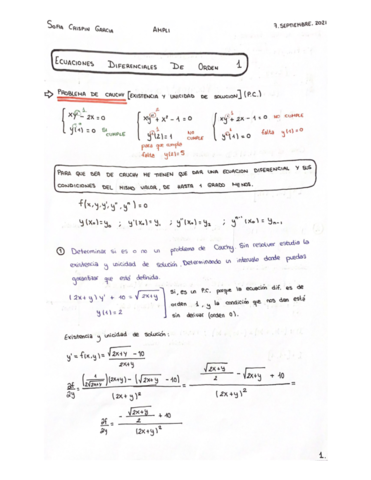 SOFIA CRISPIN GARCIA AMPLI 7. SEPTIEMBRE. 2021
ECUACIONES DIFERENCIALES DE ORDEN 1
PROBLEMA DE CAUCHY [EXISTENCIA Y UNICIDAD DE SOLUCION] (P.C.)
xy' - 2x = 0
y(1) = 0 SI CUMPLE
xy'' + x² - 1 = 0
y'(2) = 1 NO CUMPLE
para que cumpla falta y(2) = 5
xy'' + 2x - 1 = 0 NO CUMPLE
falta y(1) = 0
PARA QUE SER DE CAUCHY ME TIENEN QUE DAR UNA ECUACION DIFERENCIAL Y SUS
CONDICIONES DEL MISMO VALOR, DE HASTA 1 GRADO MENOS.
f(x, y, y', y'', yⁿ) = 0
y(x₀) = y₀ ; y'(x₀) = y₁ ; y''(x₀) = y₂ ; yⁿ⁻¹(x₀) = yₙ₋₁
① Determinar si es o no un problema de Cauchy. Sin resolver estudia la
existencia y unicidad de solución. Determinando un intervalo donde puedas
garantizar que esté definida.
(2x+y) y' + 10 = √2x+y
y(1) = 2
Si, es un P.C. porque la ecuación dif. es de
orden 1, y la condición que nos dan está
sin derivar (orden 0).
Existencia y unicidad de solución:
y' = f(x,y) = (√2x+y - 10) / (2x+y)
∂f/∂y = ((1/(2√2x+y))(2x+y) - (√2x+y - 10)) / (2x+y)² = (√2x+y/2 - √2x+y + 10) / (2x+y)² =
∂f/∂y = (-√2x+y/2 + 10) / (2x+y)²
1.